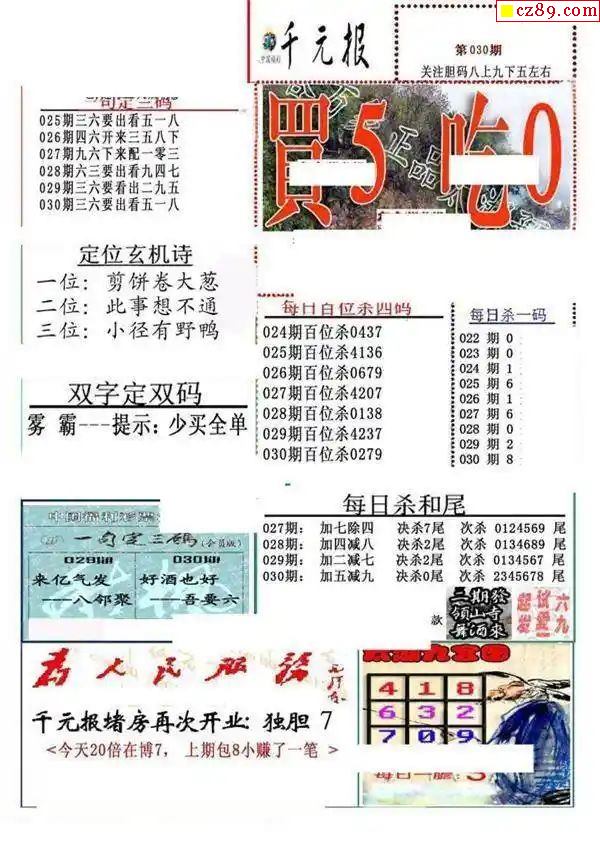 cz89.com
千元报
第030期
关注胆码八上九下五左右
句定三码
025期三六要出看五一八
026期四六开来三五八下
027期九六下来配一零三
028期六三要看出九四七
029期三六要看出二九五
030期三六要出看五一八
買5 吃0
定位玄机诗
一位：剪饼卷大葱
二位：此事想不通
三位：小径有野鸭
双字定双码
雾 霸---提示：少买全单
每日百位杀四码
024期百位杀0437
025期百位杀4136
026期百位杀0679
027期百位杀4207
028期百位杀0138
029期百位杀4237
030期百位杀0279
每日杀一码
022 期 0
023 期 0
024 期 1
025 期 6
026 期 1
027 期 6
028 期 0
029 期 2
030 期 8
每日杀和尾
027期： 加七除四 决杀7尾 次杀 0124569 尾
028期： 加四减八 决杀2尾 次杀 0134689 尾
029期： 加二减七 决杀2尾 次杀 0134567 尾
030期： 加五减九 决杀0尾 次杀 2345678 尾
一句定三码(会员版)
029期
来亿气发
——八邻聚
030期
好酒也好
——吾要六
款
三期發
領山寺
舞酒來
六九
为人民服务
千元报堵房再次开业: 独胆 7
<今天20倍在博7， 上期包8小赚了一笔 >
4 1 8
6 3 2
7 0 9
每日一胆：3